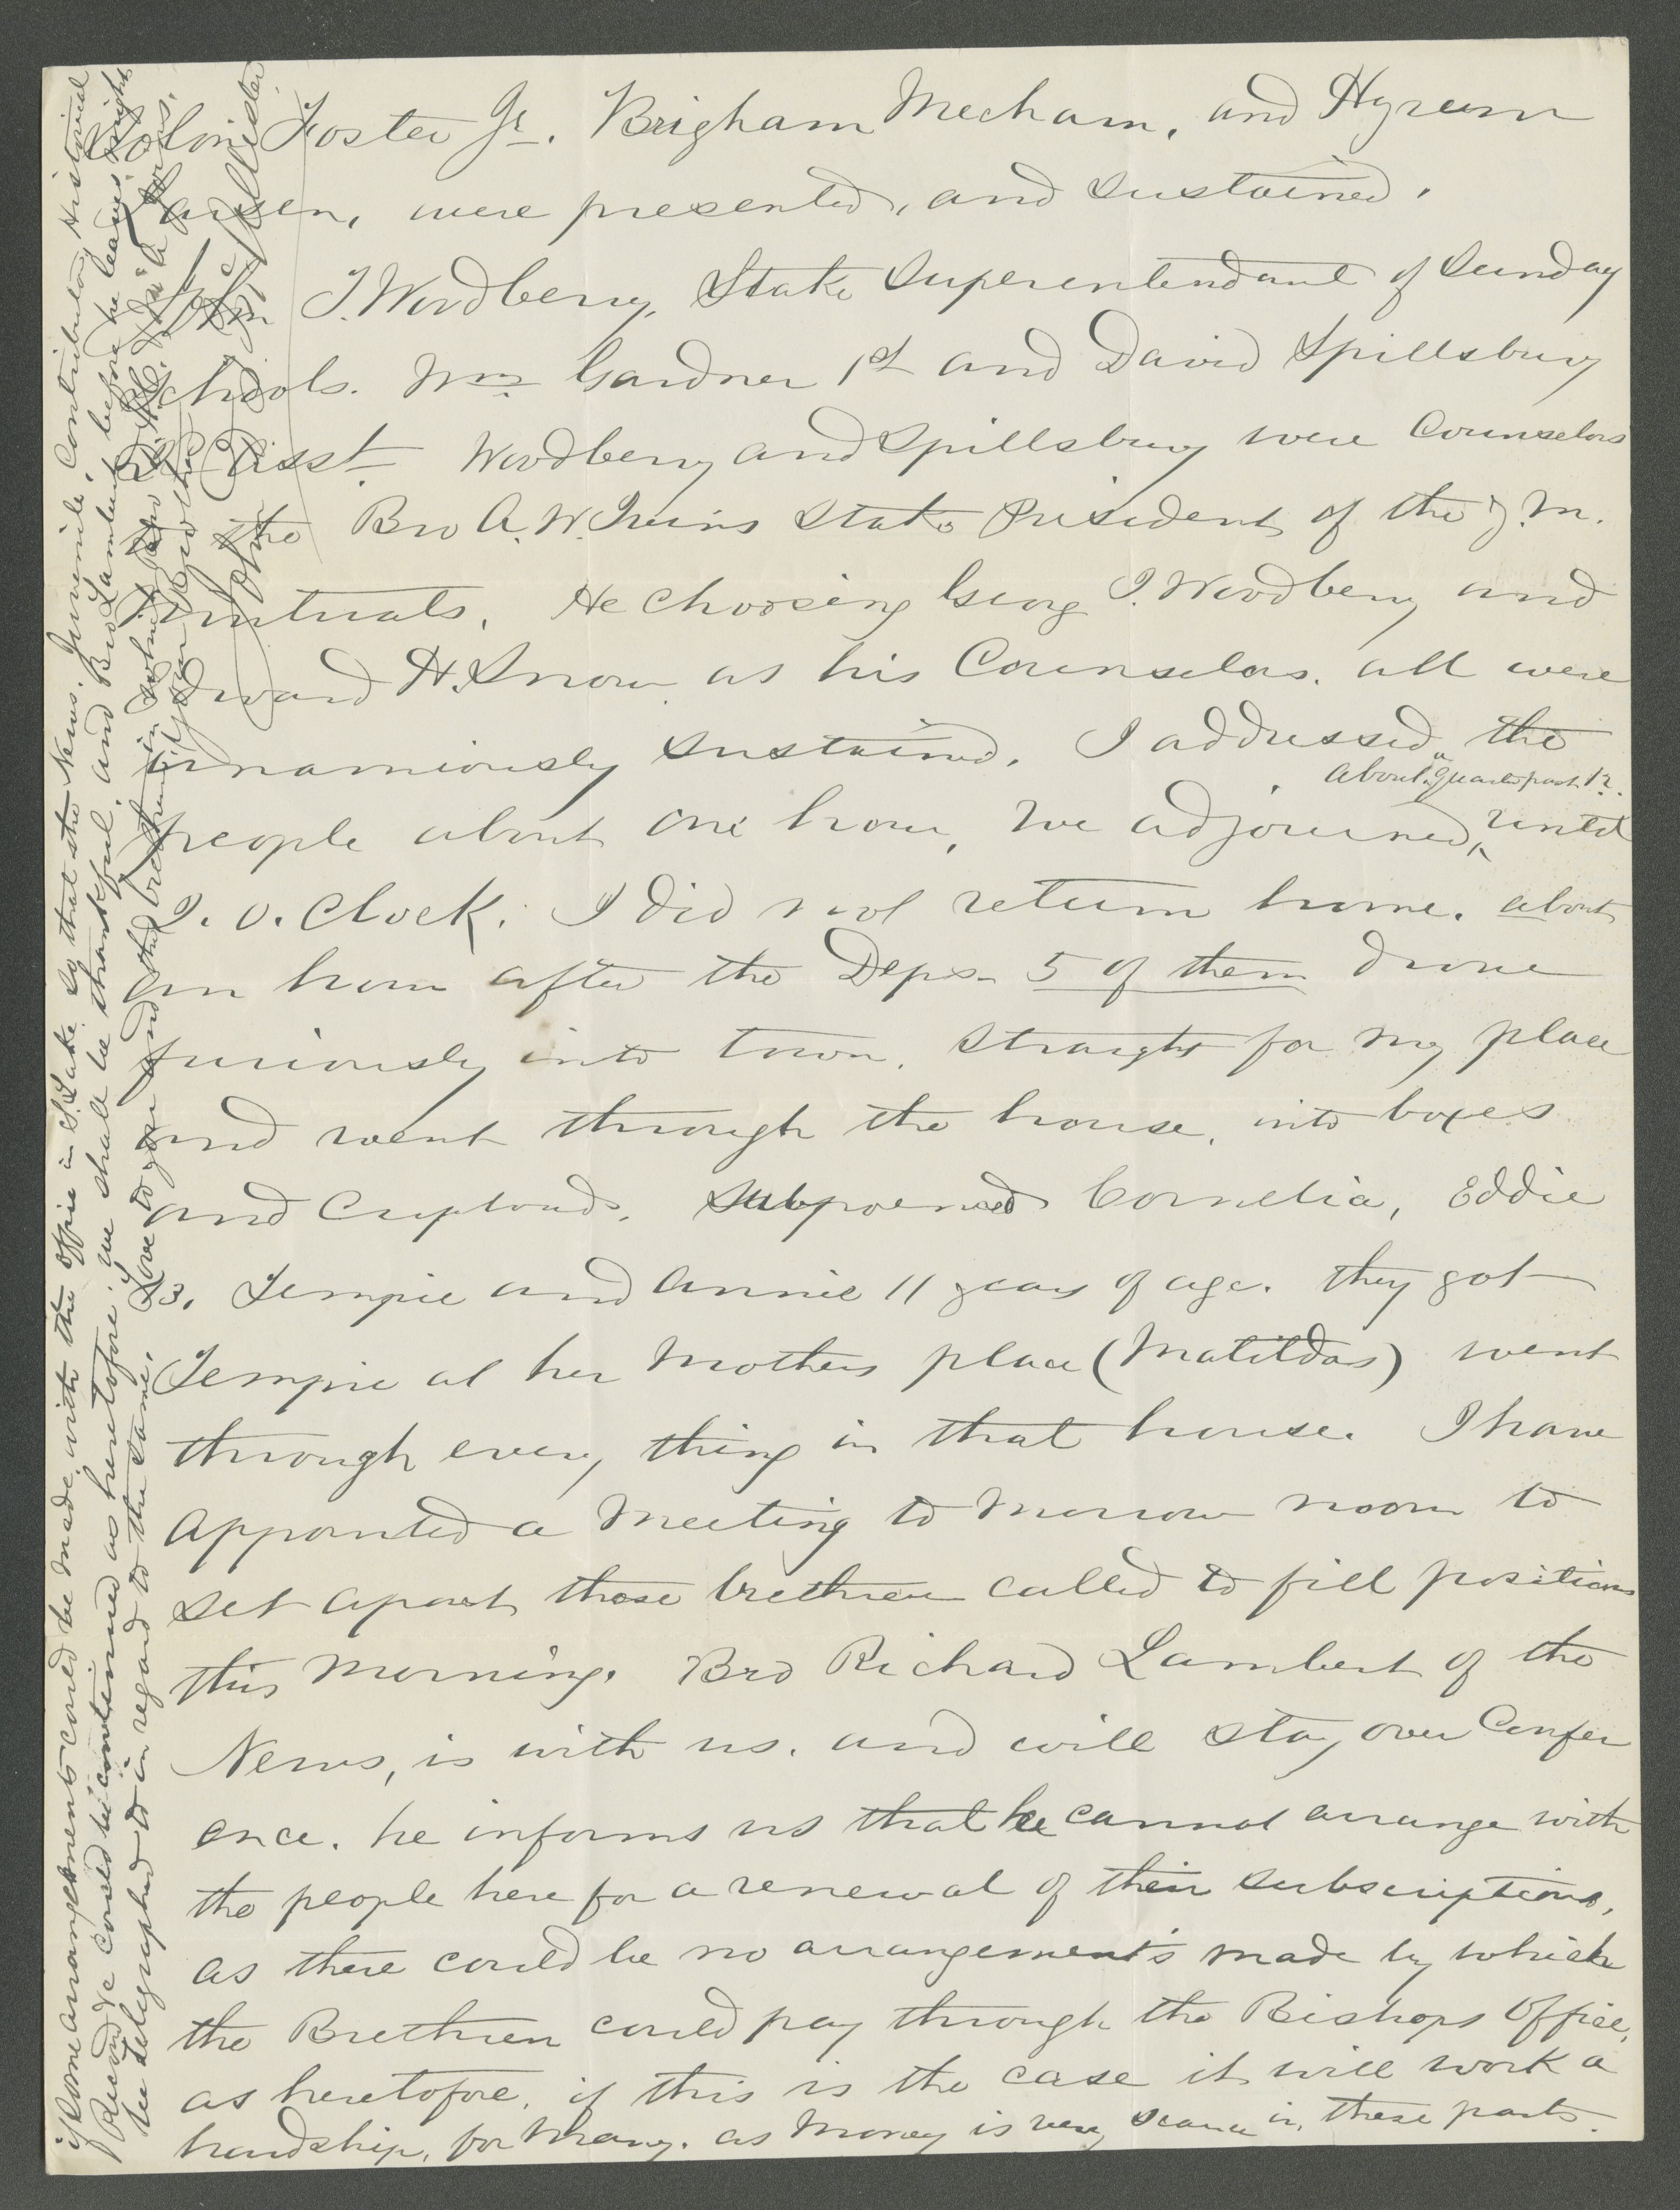 Solon Foster Jr. Brigham Mecham, and Hyrum
Larsen, were presented, and Sustained.
J. Woodbery, Stake Superentendant of Sunday
Schools. Wm Gardner 1st and David Spillsbury
2d Asst. Woodbery and Spillsbury were Counselors
to the Bro A. W. Ivins Stake President of the Y. M.
Mutuals. He Choosing Georg J. Woodbery and
Edward H. Snow as his Counselors. all were
unnamiously Sustained. I addressed the
about a quarter past 12.
people about one hour, We adjourned, until
2. O. Clock. I did not return home. about
an hour after the Deps. 5 of them drove
furiously into town, Straight for my place
and went through the house, into boxes
and Cupboards. Subpoenaed Cornelia, Eddie
13. Tempie and Annie 11 years of age. they got
Tempie at her Mothers place (Matildas) went
through every thing in that house. I have
appointed a Meeting to Morrow noon to
Set apart those brethren called to fill positions
this Morning. Bro Richard Lambert of the
News, is with us, and will stay over Confer
ence. he informs us that he cannot arrange with
the people here for a renewal of their Subscriptions,
as there could be no arrangements made by which
the Brethren could pay through the Bishops Office,
as heretofore, if this is the case it will work a
hardship, for Many. as Money is very Scarce in these parts.
if Some arrangements could be made with the Office in S. Lake So that the News, Juvenile, Contributor, Historical
Record &c could be continued as heretofore, we shall be thankful, and Bro Lambert before he leaves might
be telegraphed to in regard to the Same.
Love to you and the brethren in